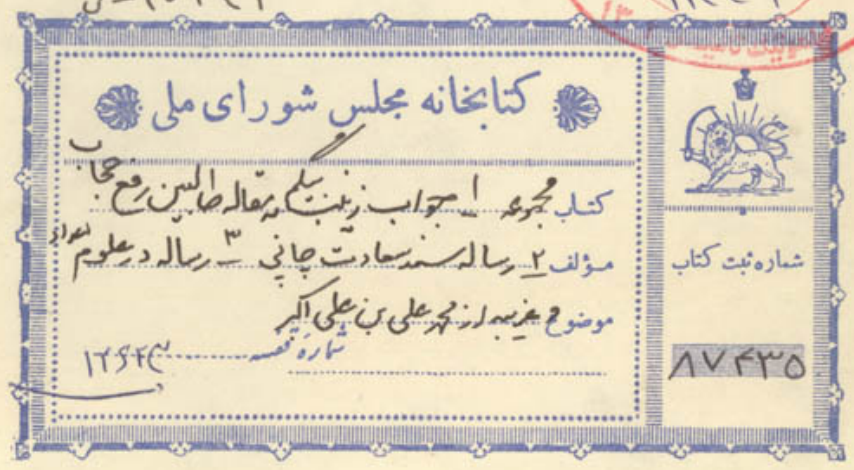 کتابخانه مجلس شورای ملی
کتاب مجموعه ۱ جواب زینب بیگم به مقاله طالبین رفع حجاب
مؤلف ۲ رساله سند سعادت چاپی ۳ رساله در علوم
موضوع غریبه از محمد علی بن علی اکبر
شماره قفسه ۱۲۶۲۳
شماره ثبت کتاب
۸۷۴۳۵